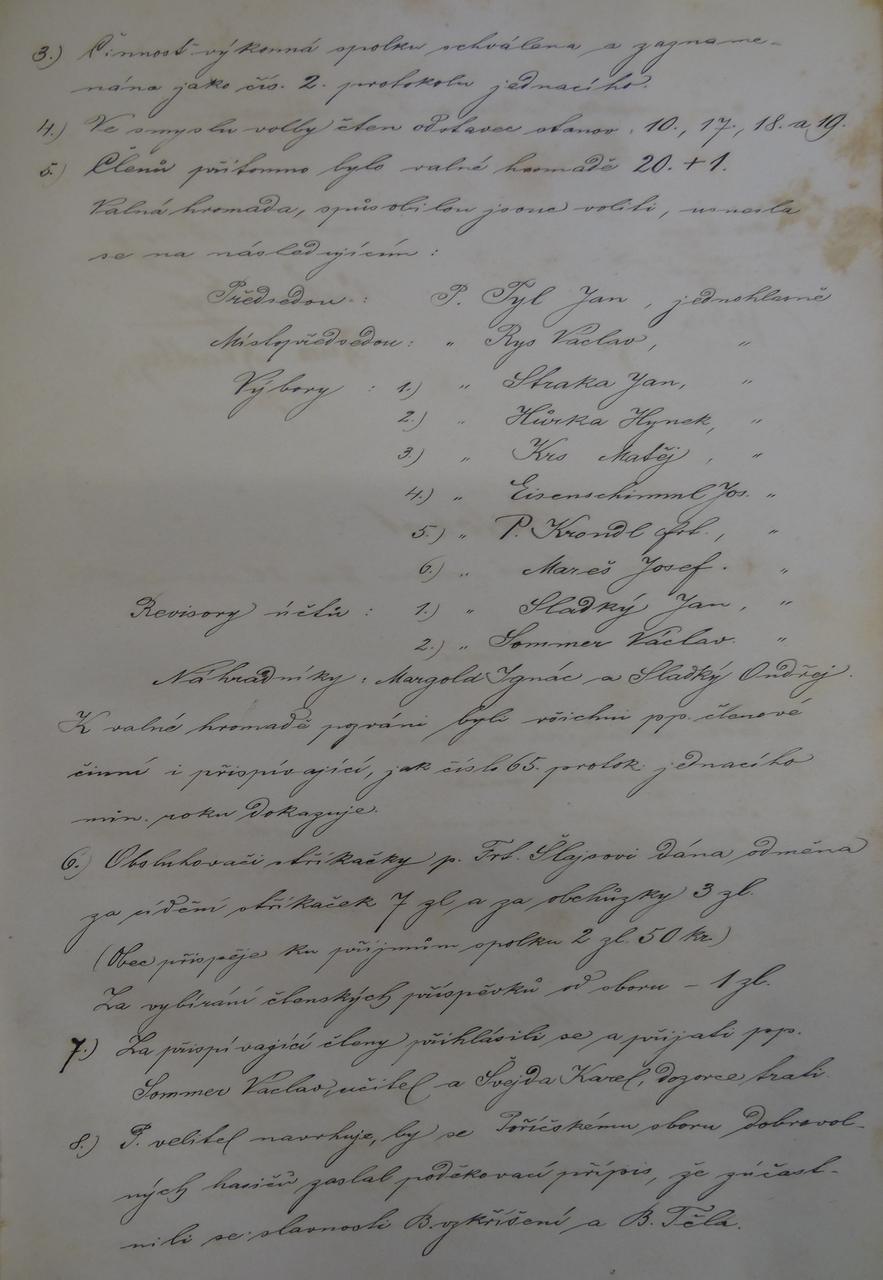 3.) Činnost výkonná spolku schválena a zazname-
nána jako čís. 2. protokolu jednacího.
4.) Ve smyslu volby čten odstavec stanov : 10., 17., 18. a 19.
5.) Členů přítomno bylo valné hromadě 20. + 1.
Valná hromada, spůsobilou jsouc voliti, usnesla
se na následujícím :
Předsedou : P. Tyl Jan , jednohlasně
Místopředsedou : „ Rys Václav, „
Výbory : 1.) „ Straka Jan, „
2.) „ Hůrka Hynek, „
3.) „ Krs Matěj , „
4.) „ Eisenschimml Jos. „
5.) „ P. Krondl Frt., „
6.) „ Mareš Josef . „
Revisory účtů : 1.) „ Sladký Jan, „
2.) „ Sommer Václav. „
Náhradníky : Margold Ignác a Sladký Ondřej.
K valné hromadě pozváni byli všichni pp. členové
činní i přispívající, jak číslo 65. protok. jednacího
min. roku dokazuje.
6.) Obsluhovači stříkačky p. Frt. Šlajsovi dána odměna
za řídění stříkaček 7 zl a za obchůzky 3 zl.
(Obec přispěje ku příjmům spolku 2 zl. 50 kr.)
Za vybírání členských příspěvků od sboru – 1 zl.
7.) Za přispívající členy přihlásili se a přijati pp.
Sommer Václav, učitel a Švejda Karel, dozorce trati.
8.) P. velitel navrhuje, by se Poříčskému sboru dobrovol-
ných hasičů zaslal poděkovací přípis, že zúčast-
nili se slavnosti B. vzkříšení a B. Těla.